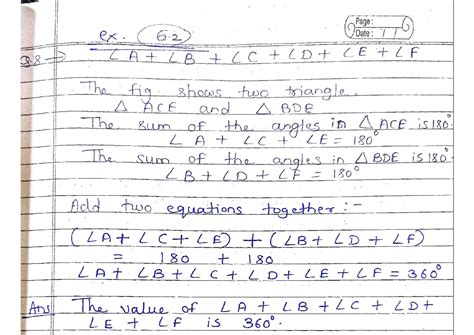 Page:
Date: 11
ex. 6.2
Q.8 → ∠A + ∠B + ∠C + ∠D + ∠E + ∠F
The fig shows two triangle.
△ ACE and △ BDE
The sum of the angles in △ ACE is 180°
∠A + ∠C + ∠E = 180°
The sum of the angles in △ BDE is 180°
∠B + ∠D + ∠F = 180°
Add two equations together :-
(∠A + ∠C + ∠E) + (∠B + ∠D + ∠F)
= 180 + 180
∠A + ∠B + ∠C + ∠D + ∠E + ∠F = 360°
Ans The value of ∠A + ∠B + ∠C + ∠D +
∠E + ∠F is 360°.